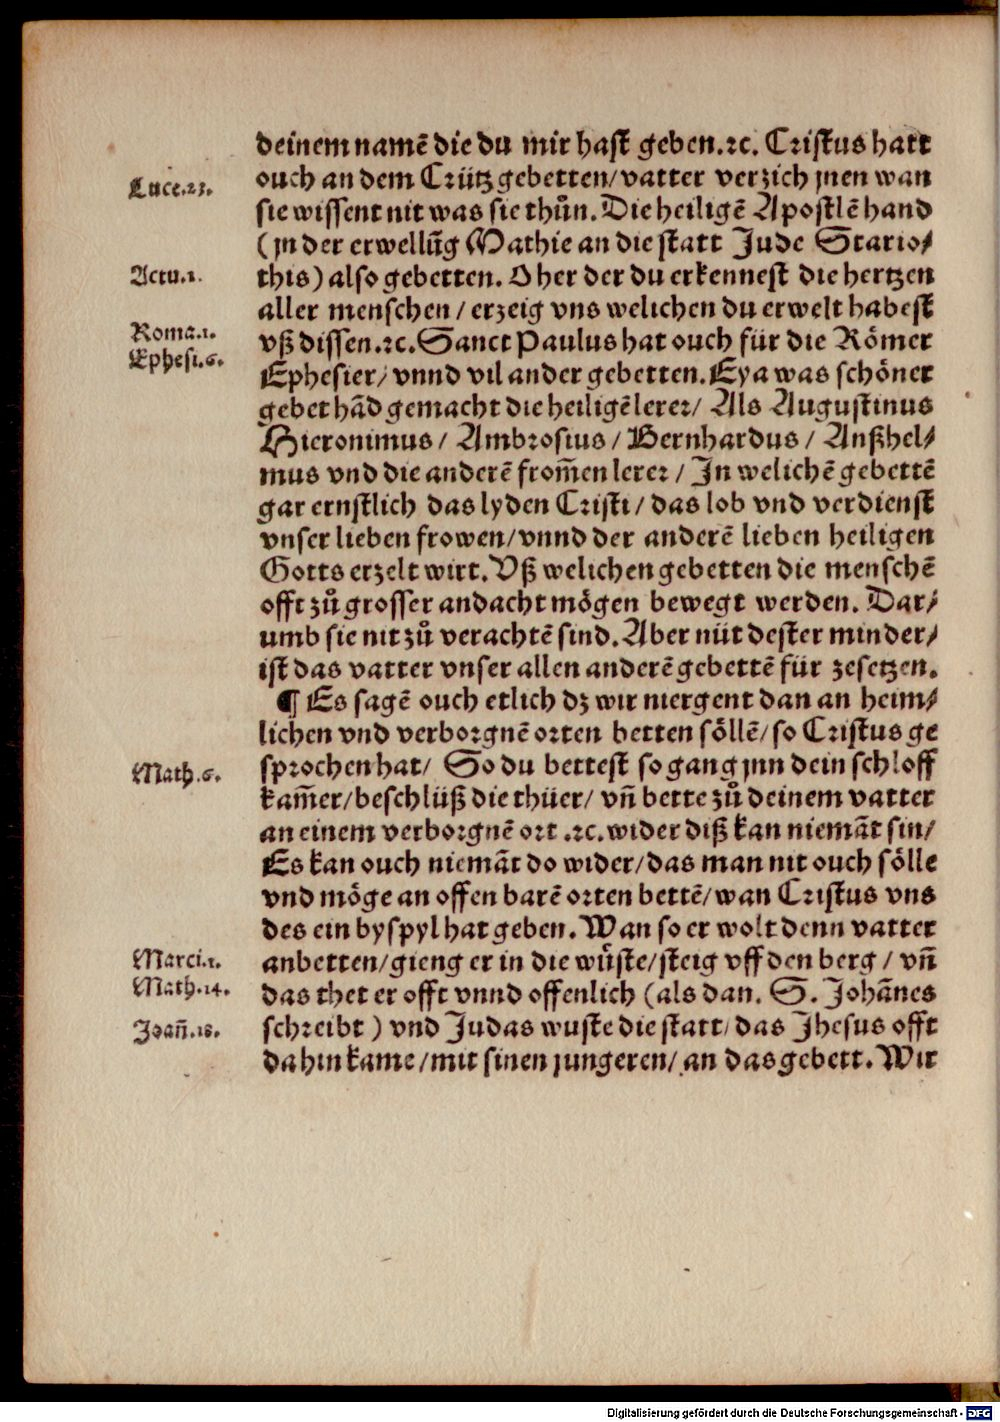 deinem namē die du mir hast geben.ꝛc. Cristus hatt
Luce.23.
ouch an dem Crütz gebetten/vatter verzich jnen wan
sie wissent nit was sie thůn. Die heiligē Apostlē hand
(jn der erwellūg Mathie an die statt Jude Stario/
Actu.1.
this) also gebetten. O her der du erkennest die hertzen
aller menschen/erzeig vns welichen du erwelt habest
Roma.1.
vß dissen.ꝛc. Sanct Paulus hat ouch für die Römer
Ephesi.6.
Ephesier/vnnd vil ander gebetten. Eya was schöner
gebet hād gemacht die heiligē lerer/Als Augustinus
Hieronimus/Ambrosius/Bernhardus/Anßhel/
mus vnd die anderē from̄en lerer/Jn welichē gebettē
gar ernstlich das lyden Cristi/das lob vnd verdienst
vnser lieben frowen/vnnd der anderē lieben heiligen
Gotts erzelt wirt. Vß welichen gebetten die menschē
offt zů grosser andacht mögen bewegt werden. Dar/
umb sie nit zů verachtē sind. Aber nüt dester minder/
ist das vatter vnser allen anderē gebettē für zesetzen.
¶ Es sagē ouch etlich dz wir niergent dan an heim/
lichen vnd verborgnē orten betten söllē/so Cristus ge
Math.6.
sprochen hat/ So du bettest so gang jnn dein schloff
kam̄er/beschlüß die thüer/vn̄ bette zů deinem vatter
an einem verborgnē ort.ꝛc.wider diß kan niemāt sin/
Es kan ouch niemāt do wider/das man nit ouch sölle
vnd möge an offen barē orten bettē/wan Cristus vns
des ein byspyl hat geben. Wan so er wolt denn vatter
Marci.1.
anbetten/gieng er in die wůste/steig vff den berg/vn̄
Math.14.
das thet er offt vnnd offenlich (als dan. S. Johānes
Joan̄.18.
schreibt) vnd Judas wuste die statt/das Jhesus offt
dahin kame/mit sinen jungeren/an das gebett. Wir
Digitalisierung gefördert durch die Deutsche Forschungsgemeinschaft - DFG